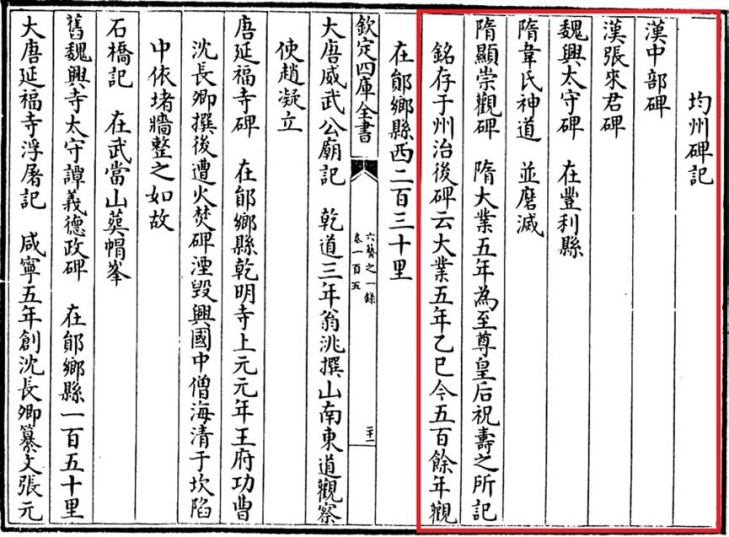 均州碑記
漢中部碑
漢張來君碑
魏興太守碑　在豐利縣
隋韋氏神道　並磨滅
隋顯崇觀碑　隋大業五年為至尊皇后祝壽之所記
銘存于州治後碑云大業五年乙巳今五百餘年觀
在鄖鄉縣西二百三十里
欽定四庫全書
六藝之一錄
卷一百五
二十一
大唐威武公廟記　乾道三年翁洮撰山南東道觀察
使趙凝立
唐延福寺碑　在鄖鄉縣乾明寺上元元年王府功曹
沈長卿撰後遭火焚碑湮毀興國中僧海清于坎陷
中依堵牆整之如故
石橋記　在武當山蓂帽峯
舊魏興寺太守譚義德政碑　在鄖鄉縣一百五十里
大唐延福寺浮屠記　咸寧五年創沈長卿纂文張元